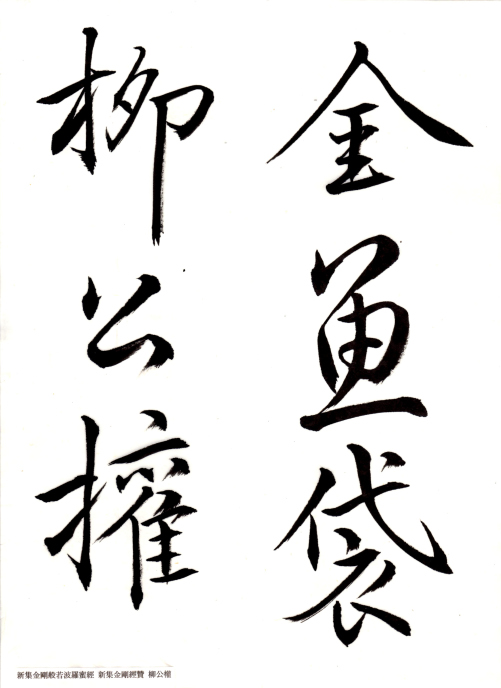 金魚袋
柳公權
新集金剛般若波羅蜜經 新集金剛經贊 柳公權